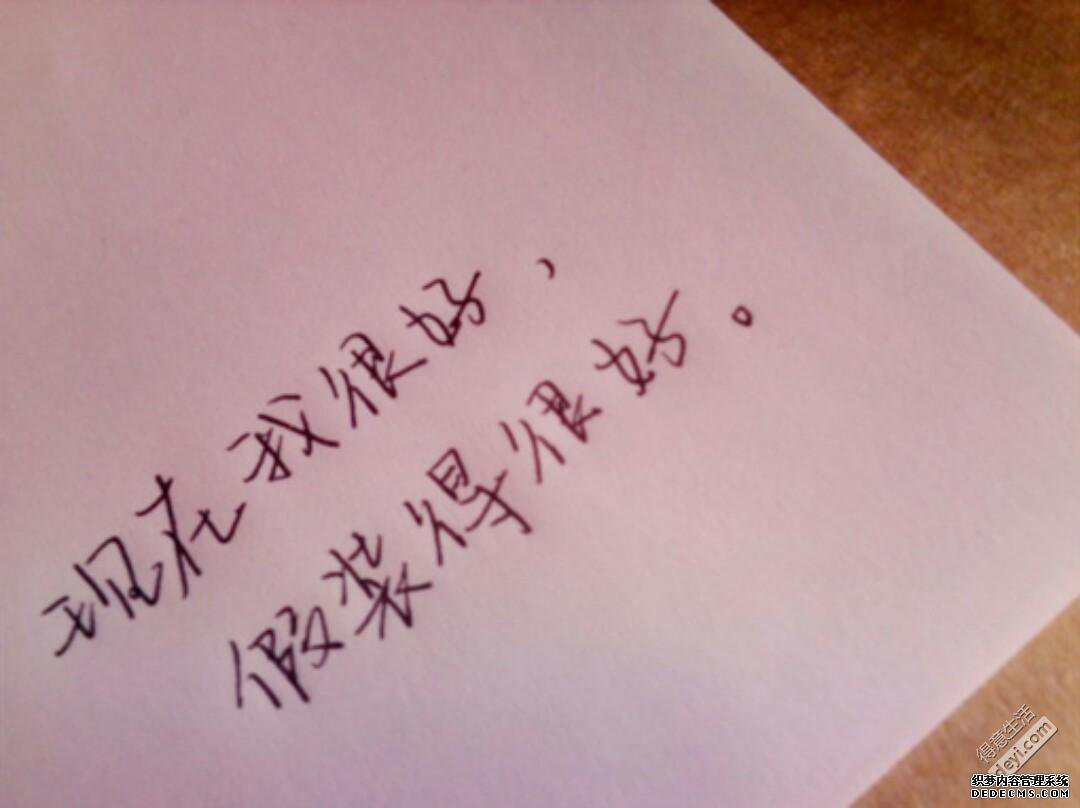 现在我很好，
假装得很好。
得意生活
deyi.com
织梦内容管理系统
DEDECMS.COM